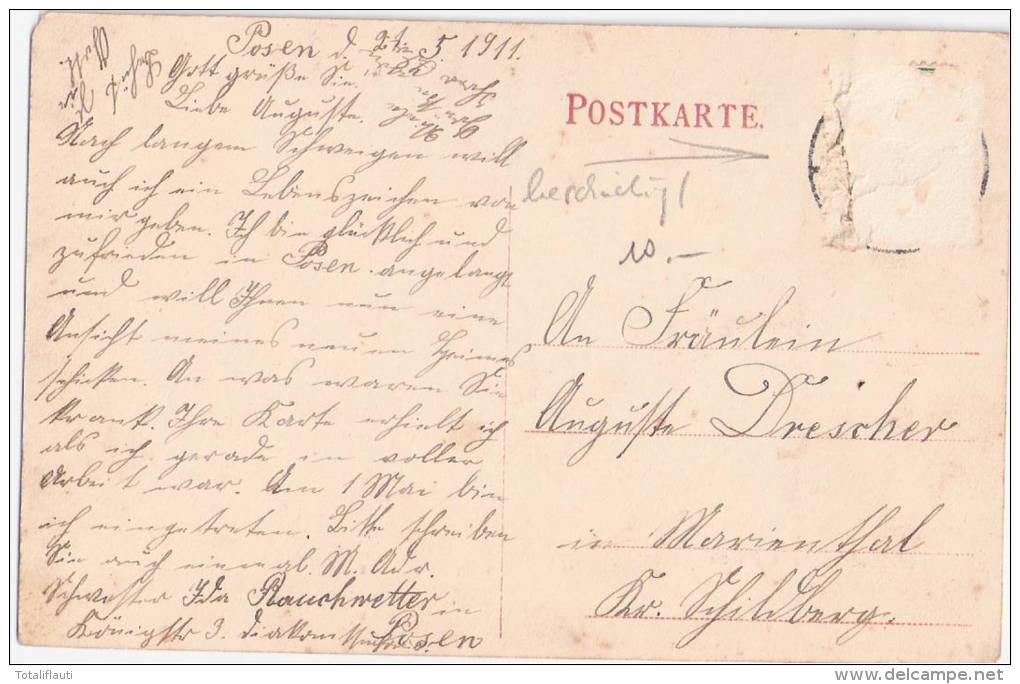 Posen d. 5 1911.
Gott grüße Sie.
Liebe Auguste.
Nach langem Schweigen will
auch ich ein Lebenszeichen von
mir geben. Ich bin glücklich und
zufrieden in Posen angelangt
und will Ihnen nun eine
Ansicht meines neuen Heimes
schicken. An was waren Sie
krank. Ihre Karte erhielt ich
als ich gerade in voller
Arbeit war. Am 1 Mai bin
ich eingetreten. Bitte schreiben
Sie auch einmal. M. Adr.
Schwester Ida Rauchwetter in
Königstr 3. Posen
POSTKARTE.
beschädigt
10.-
An Fräulein
Auguste Drescher
in Marienthal
Kr. Schildberg.
Totaliflauti
delcampe.net